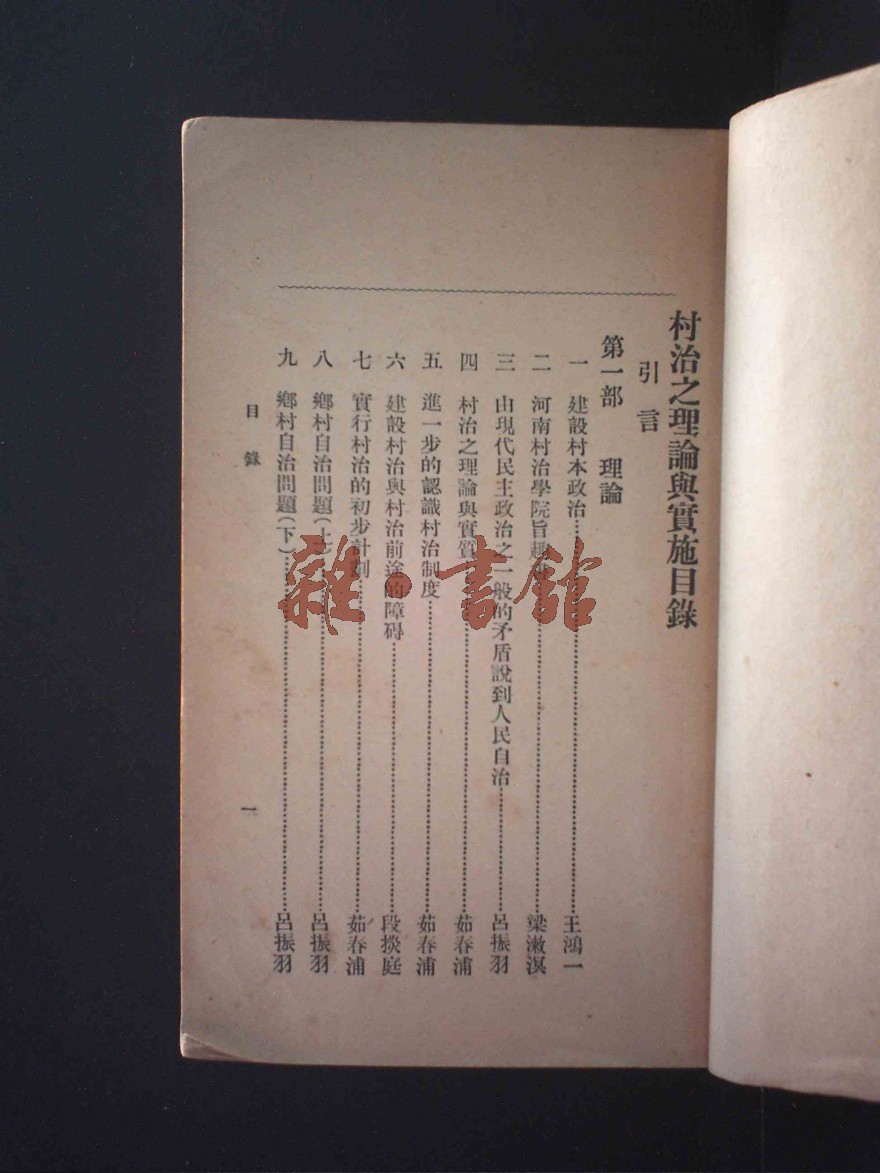 村治之理論與實施目錄
引言
第一部 理論
一 建設村本政治……王鴻一
二 河南村治學院旨趣……梁漱溟
三 由現代民主政治之一般的矛盾說到人民自治……呂振羽
四 村治之理論與實質……茹春浦
五 進一步的認識村治制度……茹春浦
六 建設村治與村治前途的障碍……段揆庭
七 實行村治的初步計劃……茹春浦
八 鄉村自治問題(上)……呂振羽
九 鄉村自治問題(下)……呂振羽
目錄
一
雜·書館